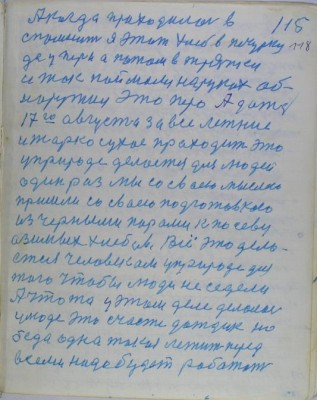 А когда приходилось в 115
споминт я этот хлеб в почурку 118
де у пера а потом в тряпки
и ток поймали на руках об-
наружил это перо А дата
17го августа за все летние
и жарко сухое проходит это
у природе делается для людей
один раз мы со своею мыслею
пришли со своею подготовкою
из черными парами к посеву
озимых хлебов, Всё это дела-
ется человеком у природе для
того чтобы люди не сидели
А что та у этом деле делалос
у моде это счасте дождик но
беда одна такая летит перед
всеми надо будет работат